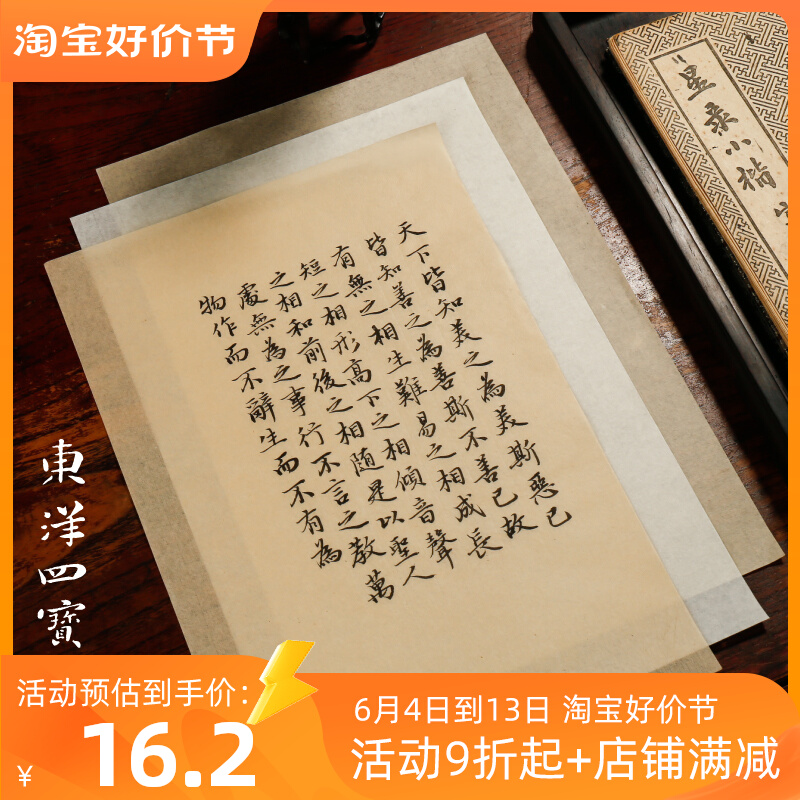 淘宝好价节
星录小楷
天下皆知美之為美斯惡已
皆知善之為善斯不善已故
有無之相生難易之相成長
短之相形高下之相傾音聲
之相和前後之相随是以聖人
處無為之事行不言之教萬
物作而不辭生而不有為
東洋四寶
活动预估到手价：
¥16.2
6月4日到13日 淘宝好价节
活动9折起+店铺满减